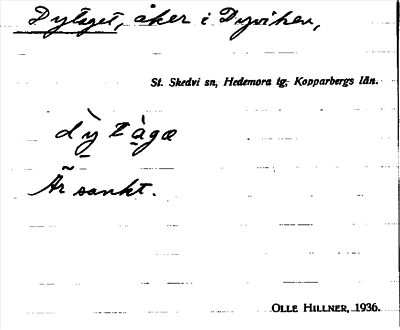 Dytaget, åker i Dyviken,
St. Skedvi sn, Hedemora tg, Kopparbergs län.
dỳtàgæ
Är sankt.
OLLE HILLNER, 1936.